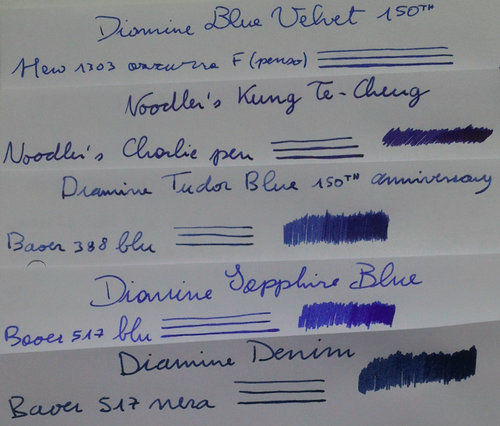 Diamine Blue Velvet 150TH
Hero 1303 azzurra F (penso)
Noodler's Kung Te-Cheng
Noodler's Charlie pen
Diamine Tudor Blue 150TH anniversary
Baoer 388 blu
Diamine Sapphire Blue
Baoer 517 blu
Diamine Denim
Baoer 517 nera